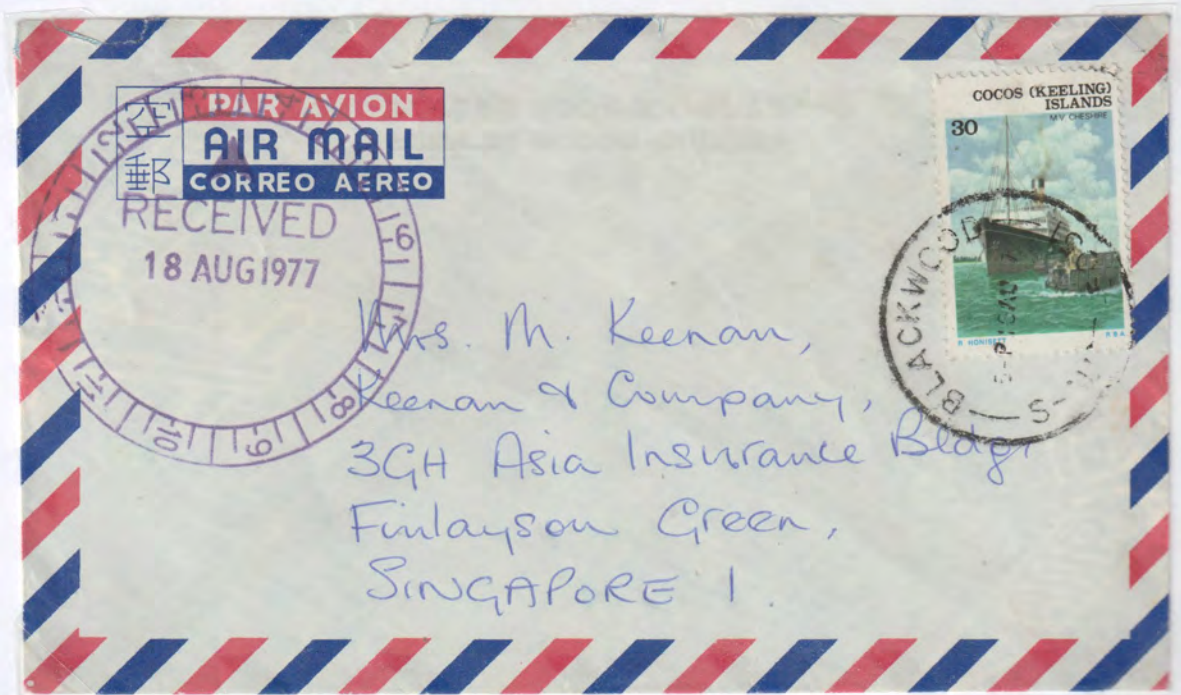 空郵
PAR AVION
AIR MAIL
CORREO AEREO
RECEIVED
18 AUG 1977
6
7
8
9
10
11
12
COCOS (KEELING)
ISLANDS
M.V. CHESHIRE
30
R HONISETT
P.B.A.
BLACKWOOD
Mrs. M. Keenan,
Keenan & Company,
3GH Asia Insurance Bldg.
Finlayson Green,
SINGAPORE 1.